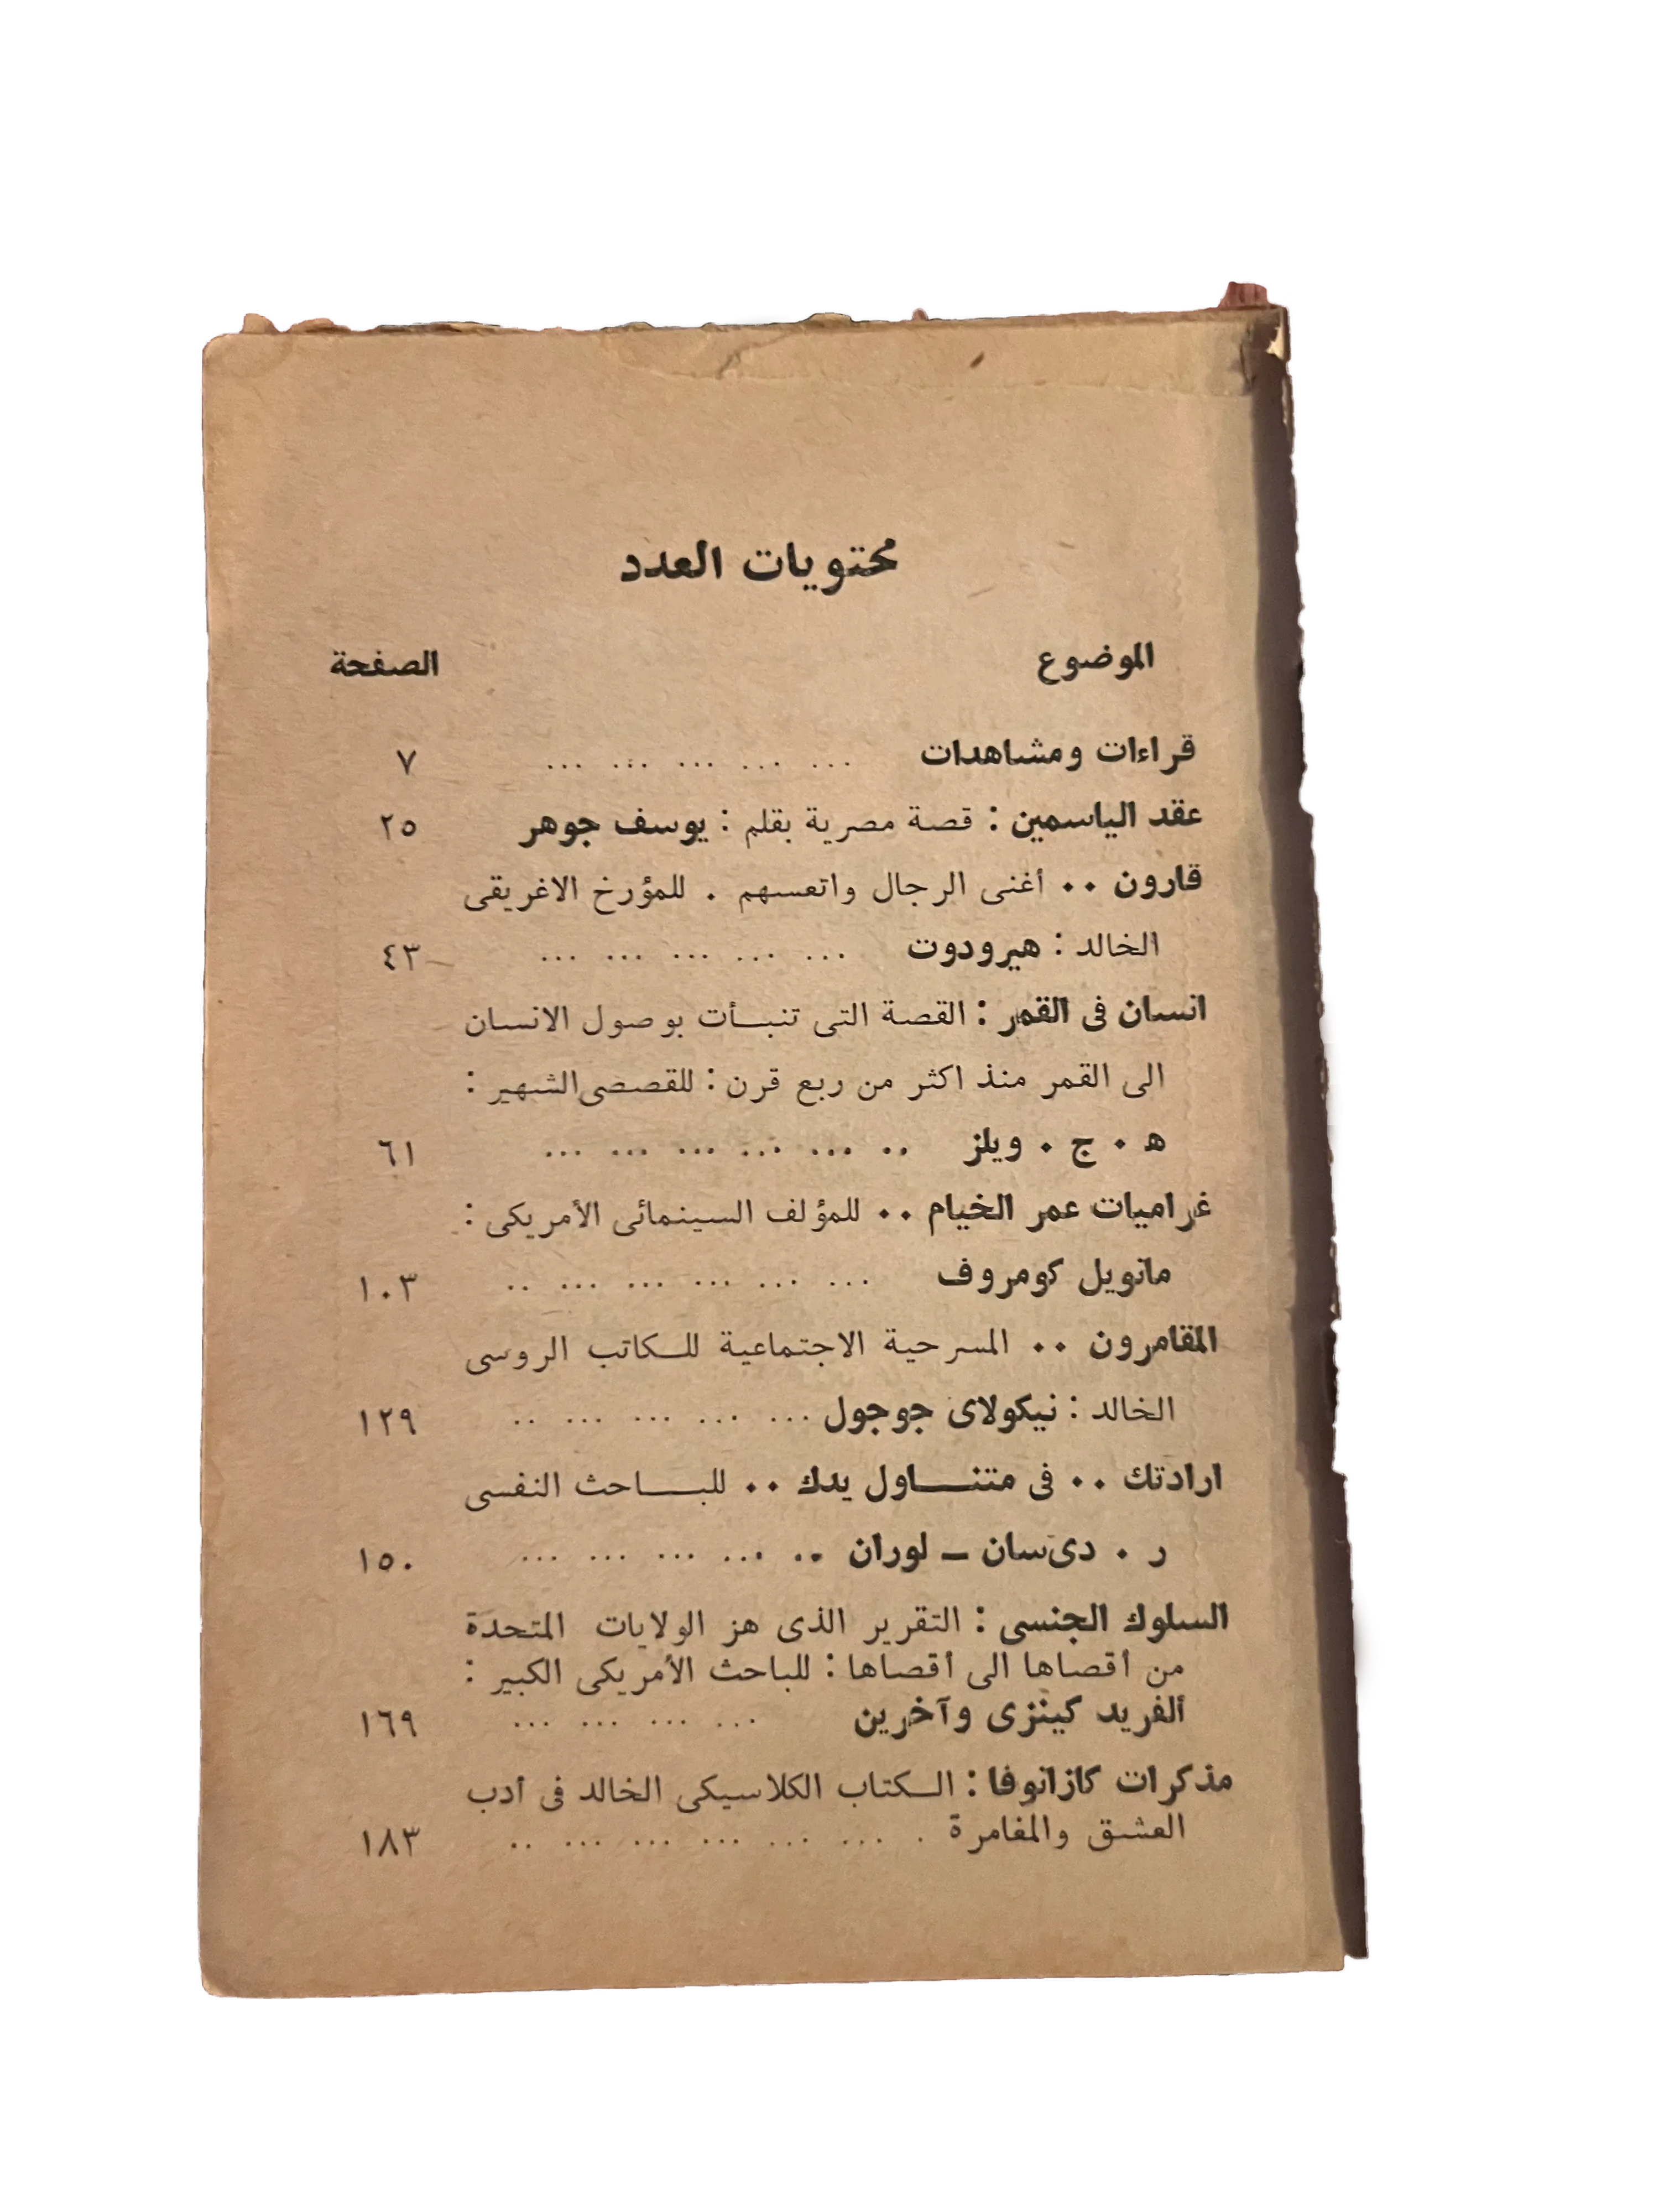 محتويات العدد
الموضوع الصفحة
قراءات ومشاهدات ... ... ... ... ... ٧
عقد الياسمين : قصة مصرية بقلم : يوسف جوهر ٢٥
قارون .. أغنى الرجال واتعسهم . للمؤرخ الاغريقى
الخالد : هيرودوت ... ... ... ... ... ٤٣
انسان فى القمر : القصة التى تنبـأت بوصول الانسان
الى القمر منذ اكثر من ربع قرن : للقصصى الشهير :
ه . ج . ويلز .. ... ... ... ... ... ٦١
غراميات عمر الخيام .. للمؤلف السينمائى الأمريكى :
مانويل كومروف ... ... ... ... ... .. ١٠٣
المقامرون .. المسرحية الاجتماعية للـكاتب الروسى
الخالد : نيكولاى جوجول ... ... ... ... .. ١٢٩
ارادتك .. فى متنـــاول يدك .. للبـــاحث النفسى
ر . دى سان ـ لوران .. ... ... ... ... ١٥٠
السلوك الجنسى : التقرير الذى هز الولايات المتحدة
من أقصاها الى أقصاها : للباحث الأمريكى الكبير :
ألفريد كينزى وآخرين ... ... ... ... ١٦٩
مذكرات كازانوفا : الـكتاب الكلاسيكى الخالد فى أدب
العشق والمغامرة . ... ... ... ... ... .. ١٨٣